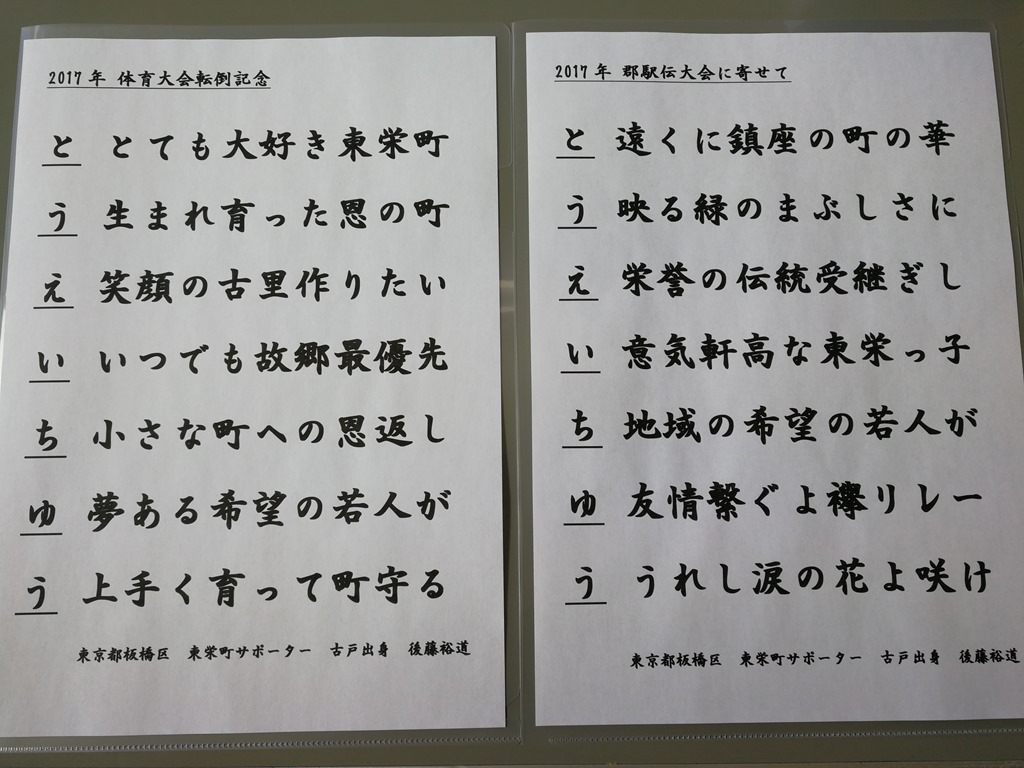 2017年 体育大会転倒記念
と とても大好き東栄町
う 生まれ育った恩の町
え 笑顔の古里作りたい
い いつでも故郷最優先
ち 小さな町への恩返し
ゆ 夢ある希望の若人が
う 上手く育って町守る
東京都板橋区 東栄町サポーター 古戸出身 後藤裕道
2017年 郡駅伝大会に寄せて
と 遠くに鎮座の町の華
う 映る緑のまぶしさに
え 栄誉の伝統受継ぎし
い 意気軒高な東栄っ子
ち 地域の希望の若人が
ゆ 友情繋ぐよ襷リレー
う うれし涙の花よ咲け
東京都板橋区 東栄町サポーター 古戸出身 後藤裕道